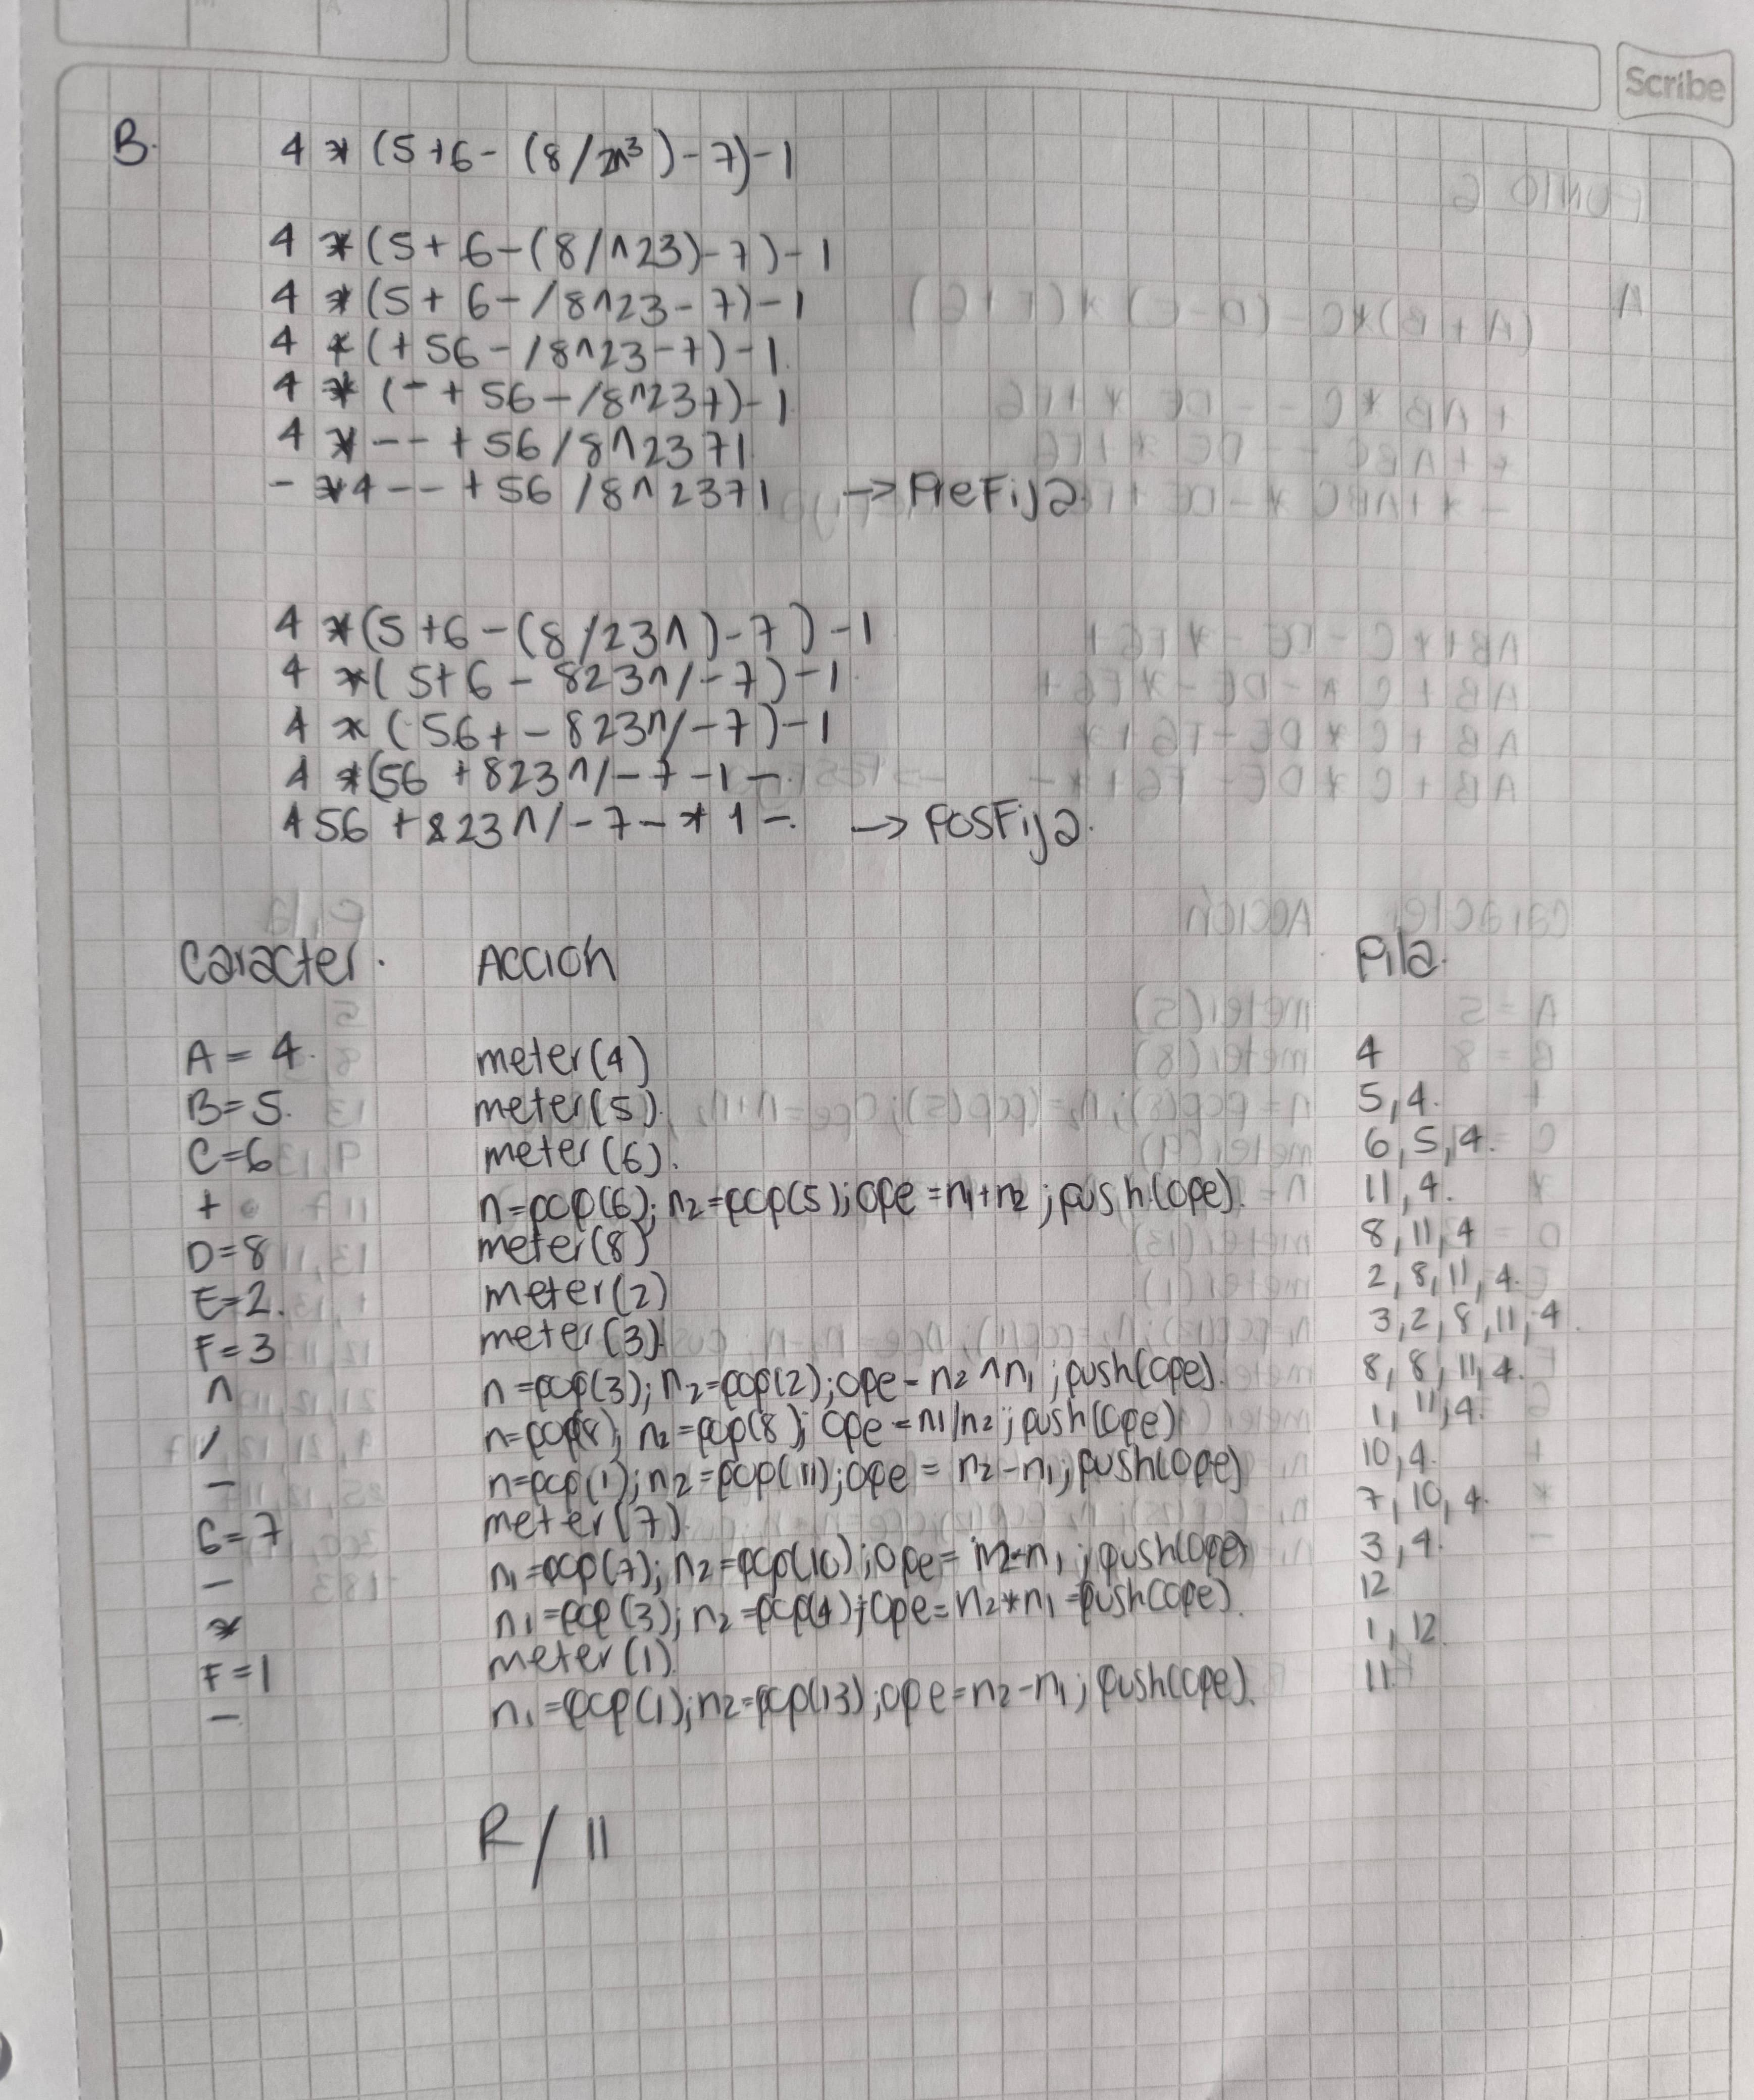 Scribe
B. 4 * (5+6-(8/2^3)-7)-1
4 * (5+6-(8/^23)-7)-1
4 * (5+6-/8^23-7)-1
4 * (+56-/8^23-7)-1.
4 * (-+56-/8^237)-1
4 * -- +56/8^2371
- *4-- +56 /8^2371 -> PreFija.
4 *(5+6-(8/23^)-7)-1
4 *(5+6-823^/-7)-1.
4 * (56+-823^/-7)-1
4 *(56+823^/-7-1-.
456+823^/-7-*1-. -> POSFija.
Caracter. Accion Pila.
A=4. meter(4) 4
B=5. meter(5). 5,4.
C=6 meter(6). 6,5,4.
+ n=pop(6); n2=pop(5);ope=n1+n2;push(ope). 11,4.
D=8 meter(8) 8,11,4
E=2. meter(2) 2,8,11,4.
F=3 meter(3). 3,2,8,11,4.
^ n=pop(3);n2=pop(2);ope-n2^n1;push(ope). 8,8,11,4.
/ n=pop(8); n2=pop(8); ope=n1/n2;push(ope) 1,11,4.
- n=pop(1);n2=pop(11);ope=n2-n1;push(ope) 10,4.
G=7 meter(7). 7,10,4.
- n1=pop(7);n2=pop(10);ope=n2-n1;push(ope) 3,4.
* n1=pop(3);n2=pop(4);ope=n2*n1=push(ope). 12
F=1 meter(1). 1,12.
- n1=pop(1);n2=pop(13);ope=n2-n1;push(ope). 11.
R/ 11